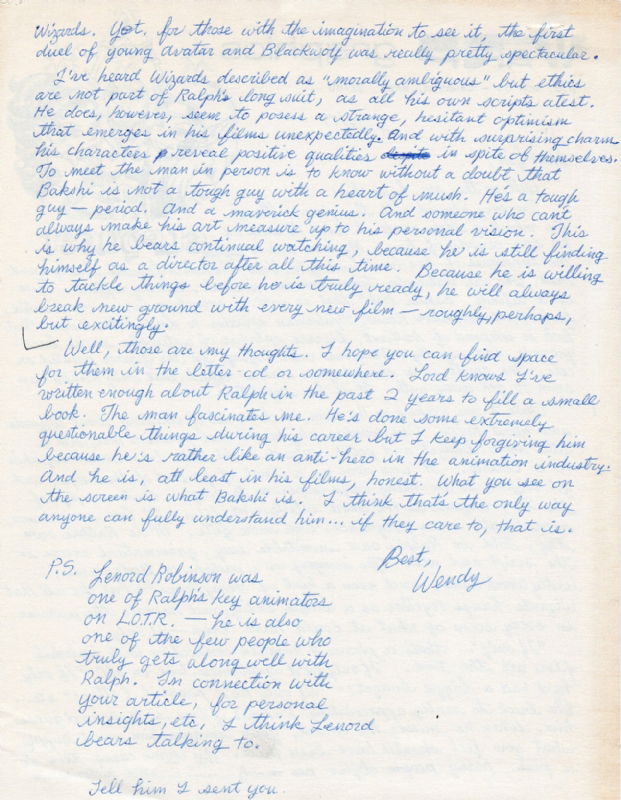 Wizards. Yet. for those with the imagination to see it, the first
duel of young avatar and Blackwolf was really pretty spectacular.
I've heard Wizards described as "morally ambiguous" but ethics
are not part of Ralph's long suit, as all his own scripts atest.
He does, however, seem to posess a strange, hesitant optimism
that emerges in his films unexpectedly. And with surprising charm
his characters reveal positive qualities despite in spite of themselves.
To meet the man in person is to know without a doubt that
Bakshi is not a tough guy with a heart of mush. He's a tough
guy — period. And a maverick genius. And someone who can't
always make his art measure up to his personal vision. This
is why he bears continual watching, because he is still finding
himself as a director after all this time. Because he is willing
to tackle things before he is truly ready, he will always
break new ground with every new film — roughly, perhaps,
but excitingly.
Well, those are my thoughts. I hope you can find space
for them in the letter-col or somewhere. Lord knows I've
written enough about Ralph in the past 2 years to fill a small
book. The man fascinates me. He's done some extremely
questionable things during his career but I keep forgiving him
because he's rather like an anti-hero in the animation industry.
And he is, all least in his films, honest. What you see on
the screen is what Bakshi is. I think that's the only way
anyone can fully understand him... if they care to, that is.
Best,
Wendy
P.S. Lenord Robinson was
one of Ralph's key animators
on L.O.T.R. — he is also
one of the few people who
truly gets along well with
Ralph. In connection with
your article, for personal
insights, etc, I think Lenord
bears talking to.
Tell him I sent you.